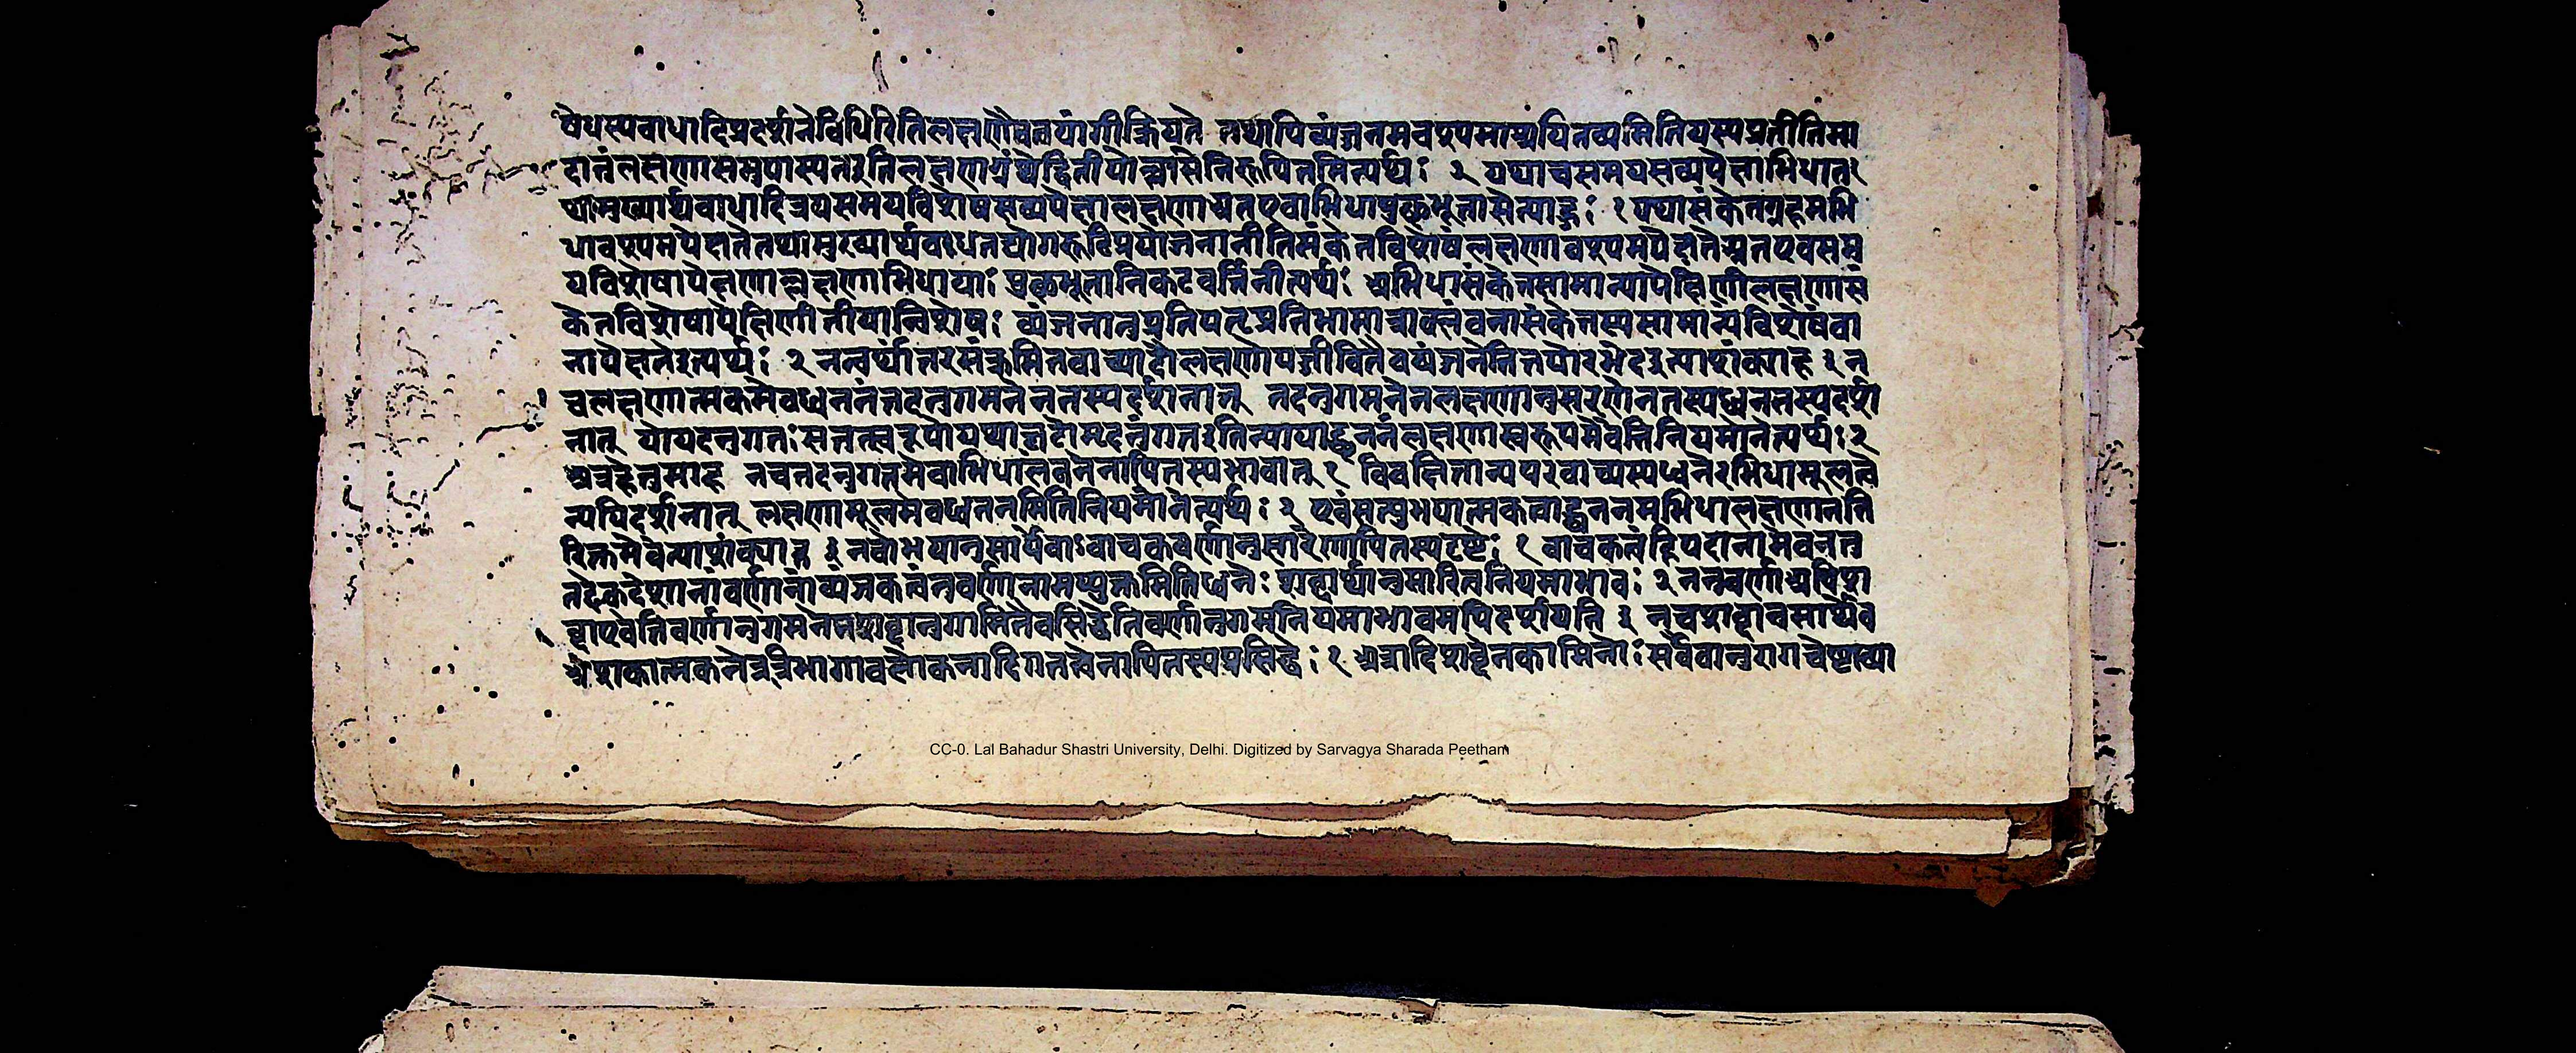 षेधस्यबाधादिप्रदर्शनेविधिरितिलक्षणैवेत्वयांगीक्रियते तथापिव्यंजनमवश्यमाश्रयितव्यमितियस्यप्रतीतिमा
धातुंलक्षणासमुपास्यतइतिलक्षणाग्रंथेद्वितीयोल्लासेनिरूपितमित्यर्थः २ यथाचसमयसव्यपेक्षाभिधातः
थामुख्यार्थबाधादित्रयसमयविशेषसव्यपेक्षालक्षणाअतएवाभिधापुछभूतासेत्याहुः १ यथासंकेतग्रहमभि
धावश्यमपेक्षतेतथामुख्यार्थबाधनद्योगरूढिप्रयोजनानीतिसंकेतविशेषंलक्षणावश्यमपेक्षतेअतएवसम
यविशेषापेक्षणाल्लक्षणाभिधायाः पुछभूतानिकटवर्तिनीत्यर्थः अभिधासंकेतसामान्यापेक्षिणीलक्षणासं
केतविशेषापेक्षिणीतीयान्विशेषः व्यंजनातुप्रतिपत्तृप्रतिभामात्रावलंबनासंकेतस्यसामान्यंविशेषंवा
नापेक्षतेइत्यर्थः २ नन्वर्थांतरसंक्रमितवाच्यादौलक्षणोपजीवितैवव्यंजनेतितयोरभेदइत्याशंक्याह ३ न
चलक्षणात्मकमेवध्वननंतदनुगमनेनतस्यदर्शनात् तदनुगमनेनलक्षणानुसरणेनतस्यध्वननस्यदर्शा
नात् योयदनुगतःसतत्स्वरूपोयथाघटोमृदनुगतइतिन्यायाद्ध्वननंलक्षणास्वरूपमेवेतिनियमोनेत्यर्थः २
अत्रहेतुमाह नचतदनुगतमेवाभिधालंबनेनापितस्यभावात् १ विवक्षितान्यपरवाच्यस्यध्वनेरभिधामूलत्वे
न्यपिदर्शनात् लक्षणामूलमेवध्वननमितिनियमोनेत्यर्थः २ एवंसत्युभयात्मकत्वाद्ध्वननमभिधालक्षणानति
रिक्तमेवेत्याशंक्याह ३ नचोभयानुसार्येवाऽवाचकवर्णानुसारेणापितस्यदृष्टेः १ वाचकत्वंहिपदानामेवनतु
तदेकदेशानांवर्णानांव्यंजकत्वंतुवर्णानामप्युक्तमितिध्वनेः शब्दार्थानुसारित्वनियमाभावः २ ननुवर्णाअपिश
ब्दाएवेतिवर्णानुगमनेनशब्दानुगामितैवसिद्धेतिवर्णानुगमनियमाभावमपिदर्शयति ३ नचशब्दानुसार्येव
अशब्दात्मकनेत्रत्रिभागावलोकनादिगतत्वेनापितस्यप्रसिद्धेः १ अत्रादिशब्देनकामिनोः सर्वैवानुरागचेष्टाव्या